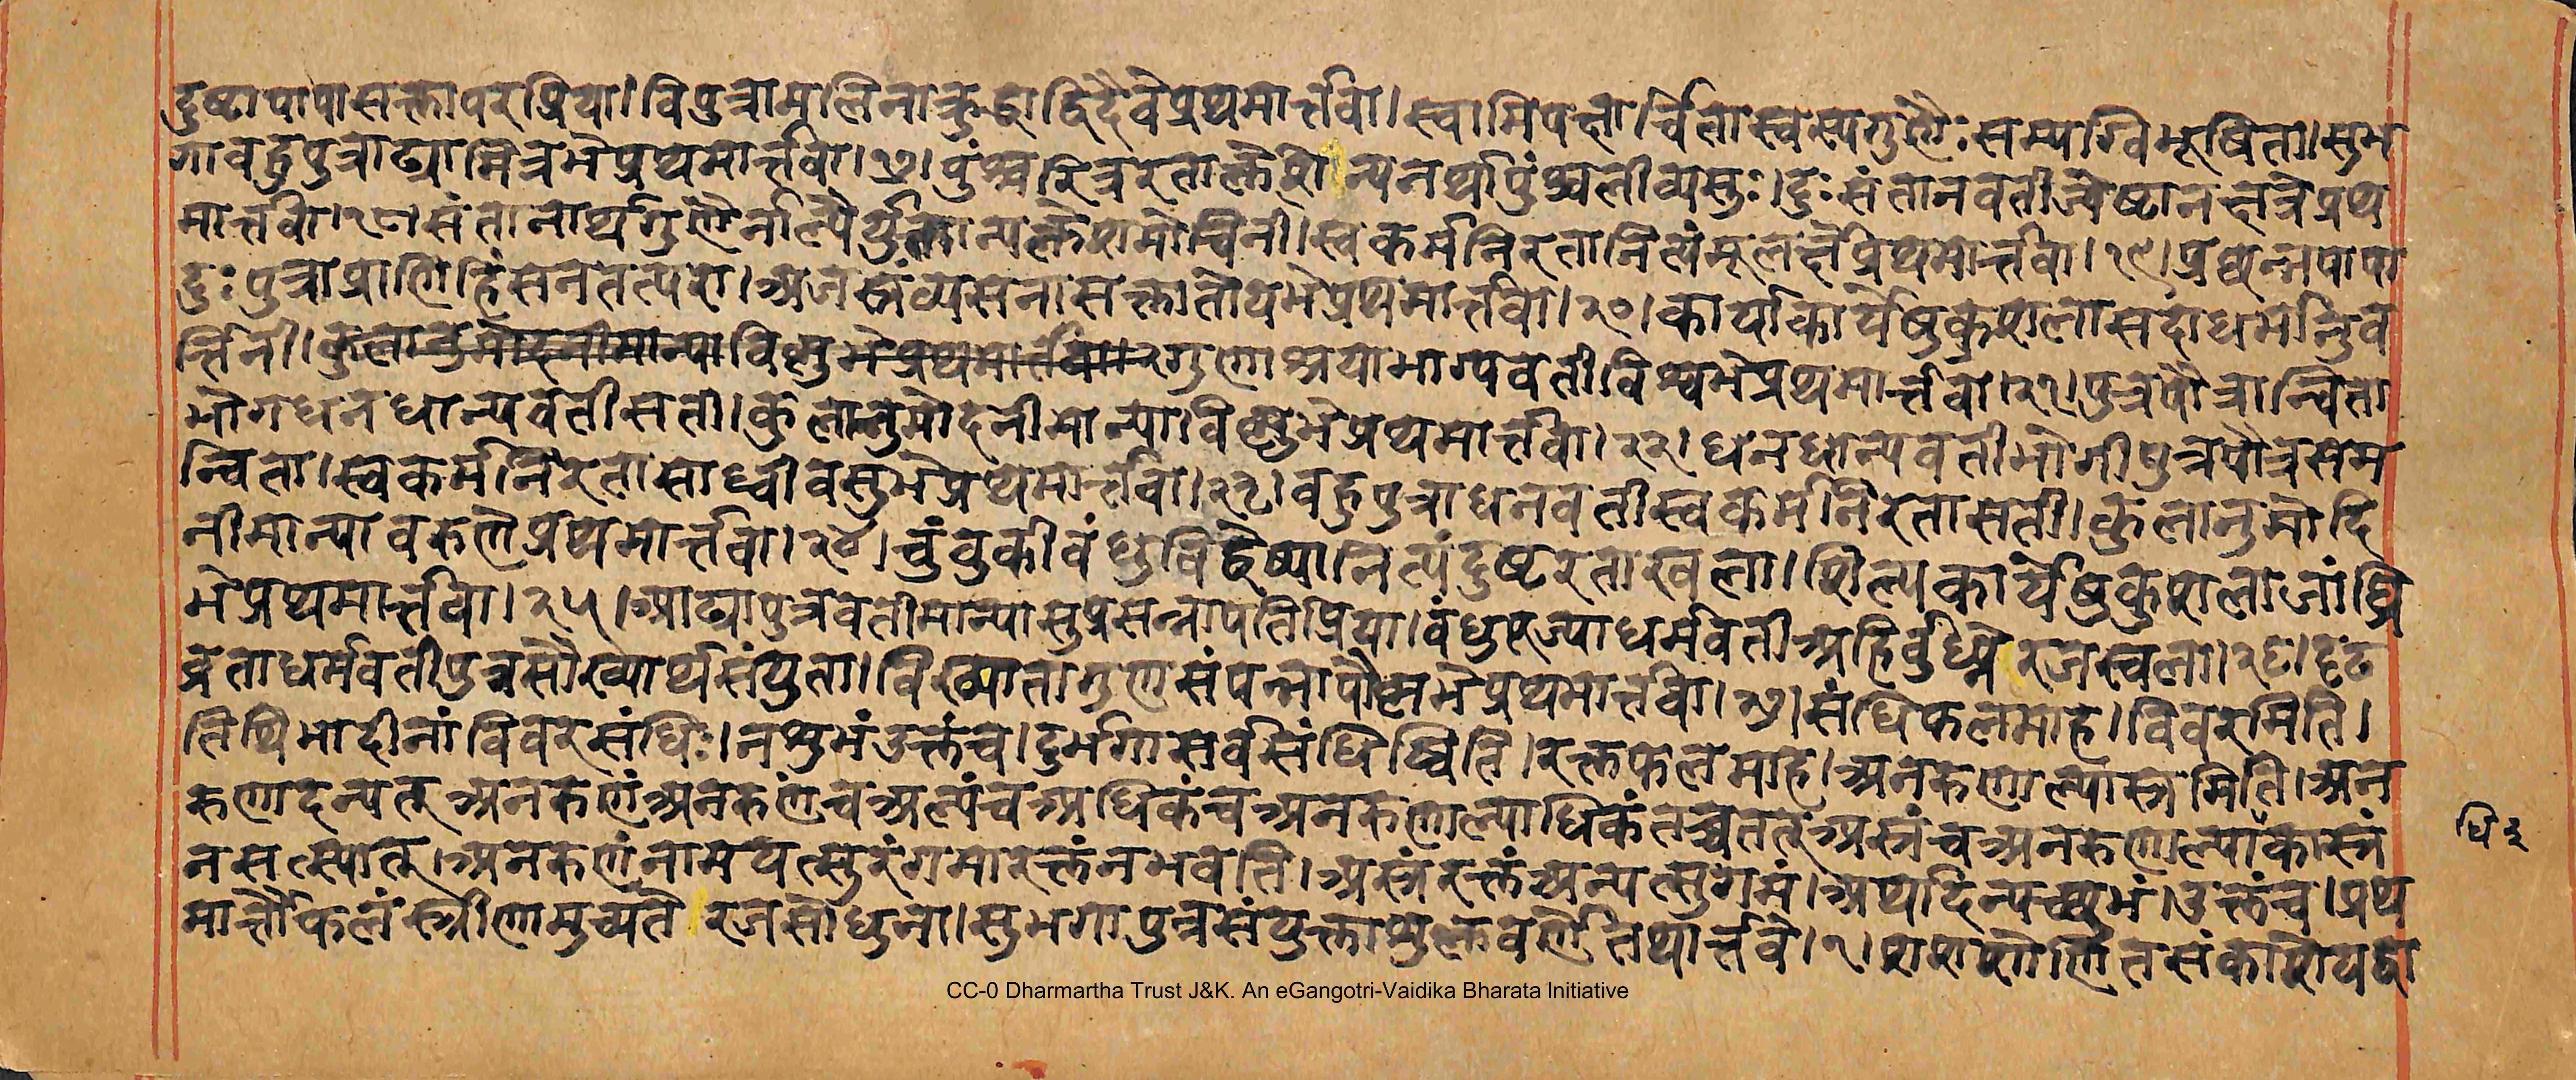 दुष्टापापासक्तापरप्रिया।विपुत्रामलिनाक्रुद्धाद्विदैवेप्रथमार्त्तवा।स्वामिपक्षार्चितास्वस्यगुणैःसम्यग्विभूषिता।सुभ
गावहुपुत्राढ्यामित्रभेप्रथमार्त्तवा।१७।पुंश्चरित्ररताक्लेशान्यनर्थापुंश्चलीव्यसुः।दुःसंतानवतीज्येष्टानक्षत्रेप्रथ
मार्त्तवा।१८।संतानार्थगुणैर्नाल्पैर्युक्तान्यक्लेशमोचिनी।स्वकर्मनिरतानित्यंमूलर्क्षेप्रथमार्त्तवा।१९।प्रछन्नपापा
दुःपुत्राप्राणिहिंसनतत्परा।अजस्रंव्यसनासक्तातोयभेप्रथमार्त्तवा।२०।कार्याकार्येषुकुशलासदाधर्मानुव
र्त्तिनी।गुणाश्रयाभाग्यवतीविश्वभेप्रथमार्त्तवा।२१।पुत्रपौत्रान्विता
भोगधनधान्यवतीसती।कुलानुमोदनीमान्याविष्णुभेप्रथमार्त्तवा।२२।धनधान्यवतीभोगीपुत्रपौत्रसम
न्विता।स्वकर्मनिरतासाध्वीवसुभेप्रथमार्त्तवा।२३।वहुपुत्राधनवतीस्वकर्मनिरतासती।कुलानुमोदि
नीमान्यावरुणेप्रथमार्त्तवा।२४।चुंवुकीवंधुविद्वेष्यानित्यंदुष्टरताखला।शिल्पकार्येषुकुशलाजांघ्रि
भेप्रथमार्त्तवा।२५।आढ्यापुत्रवतीमान्यासुप्रसन्नापतिप्रिया।वंधुपूज्याधर्मवतीअहिर्वुध्न्येरजस्वला।२६।दृढ
व्रताधर्मवतीपुत्रसौख्यार्थसंयुता।विख्यातागुणसंपन्नापौष्णभेप्रथमार्त्तवा।२७।संधिफलमाह।विवरमिति।
तिथिभादीनांविवरसंधिः।नशुभंउक्तंच।दुर्भगासर्वसंधिष्विति।रक्तफलमाह।अनरुणाल्पास्रमिति।अन
रुणादन्यत्अनरुणंअनरुणंचअल्पंचअधिकंचअनरुणाल्पाधिकंतच्चतत्अस्रंचअनरुणाल्पाकास्रं
धि२
नसत्स्यात्।अनरुणंनामयत्सुरंगमारक्तंनभवति।अस्रंरक्तंअन्यत्सुगमं।अथादिन्यच्छुभं।उक्तंच।प्रथ
मार्त्तौफलंस्त्रीणामुच्यतेरजसोधुना।सुभगापुत्रसंयुक्ताशुक्लवर्णेतथार्त्तवे।१।शशशोणितसंकाशेयद्वा
CC-0 Dharmartha Trust J&K. An eGangotri-Vaidika Bharata Initiative